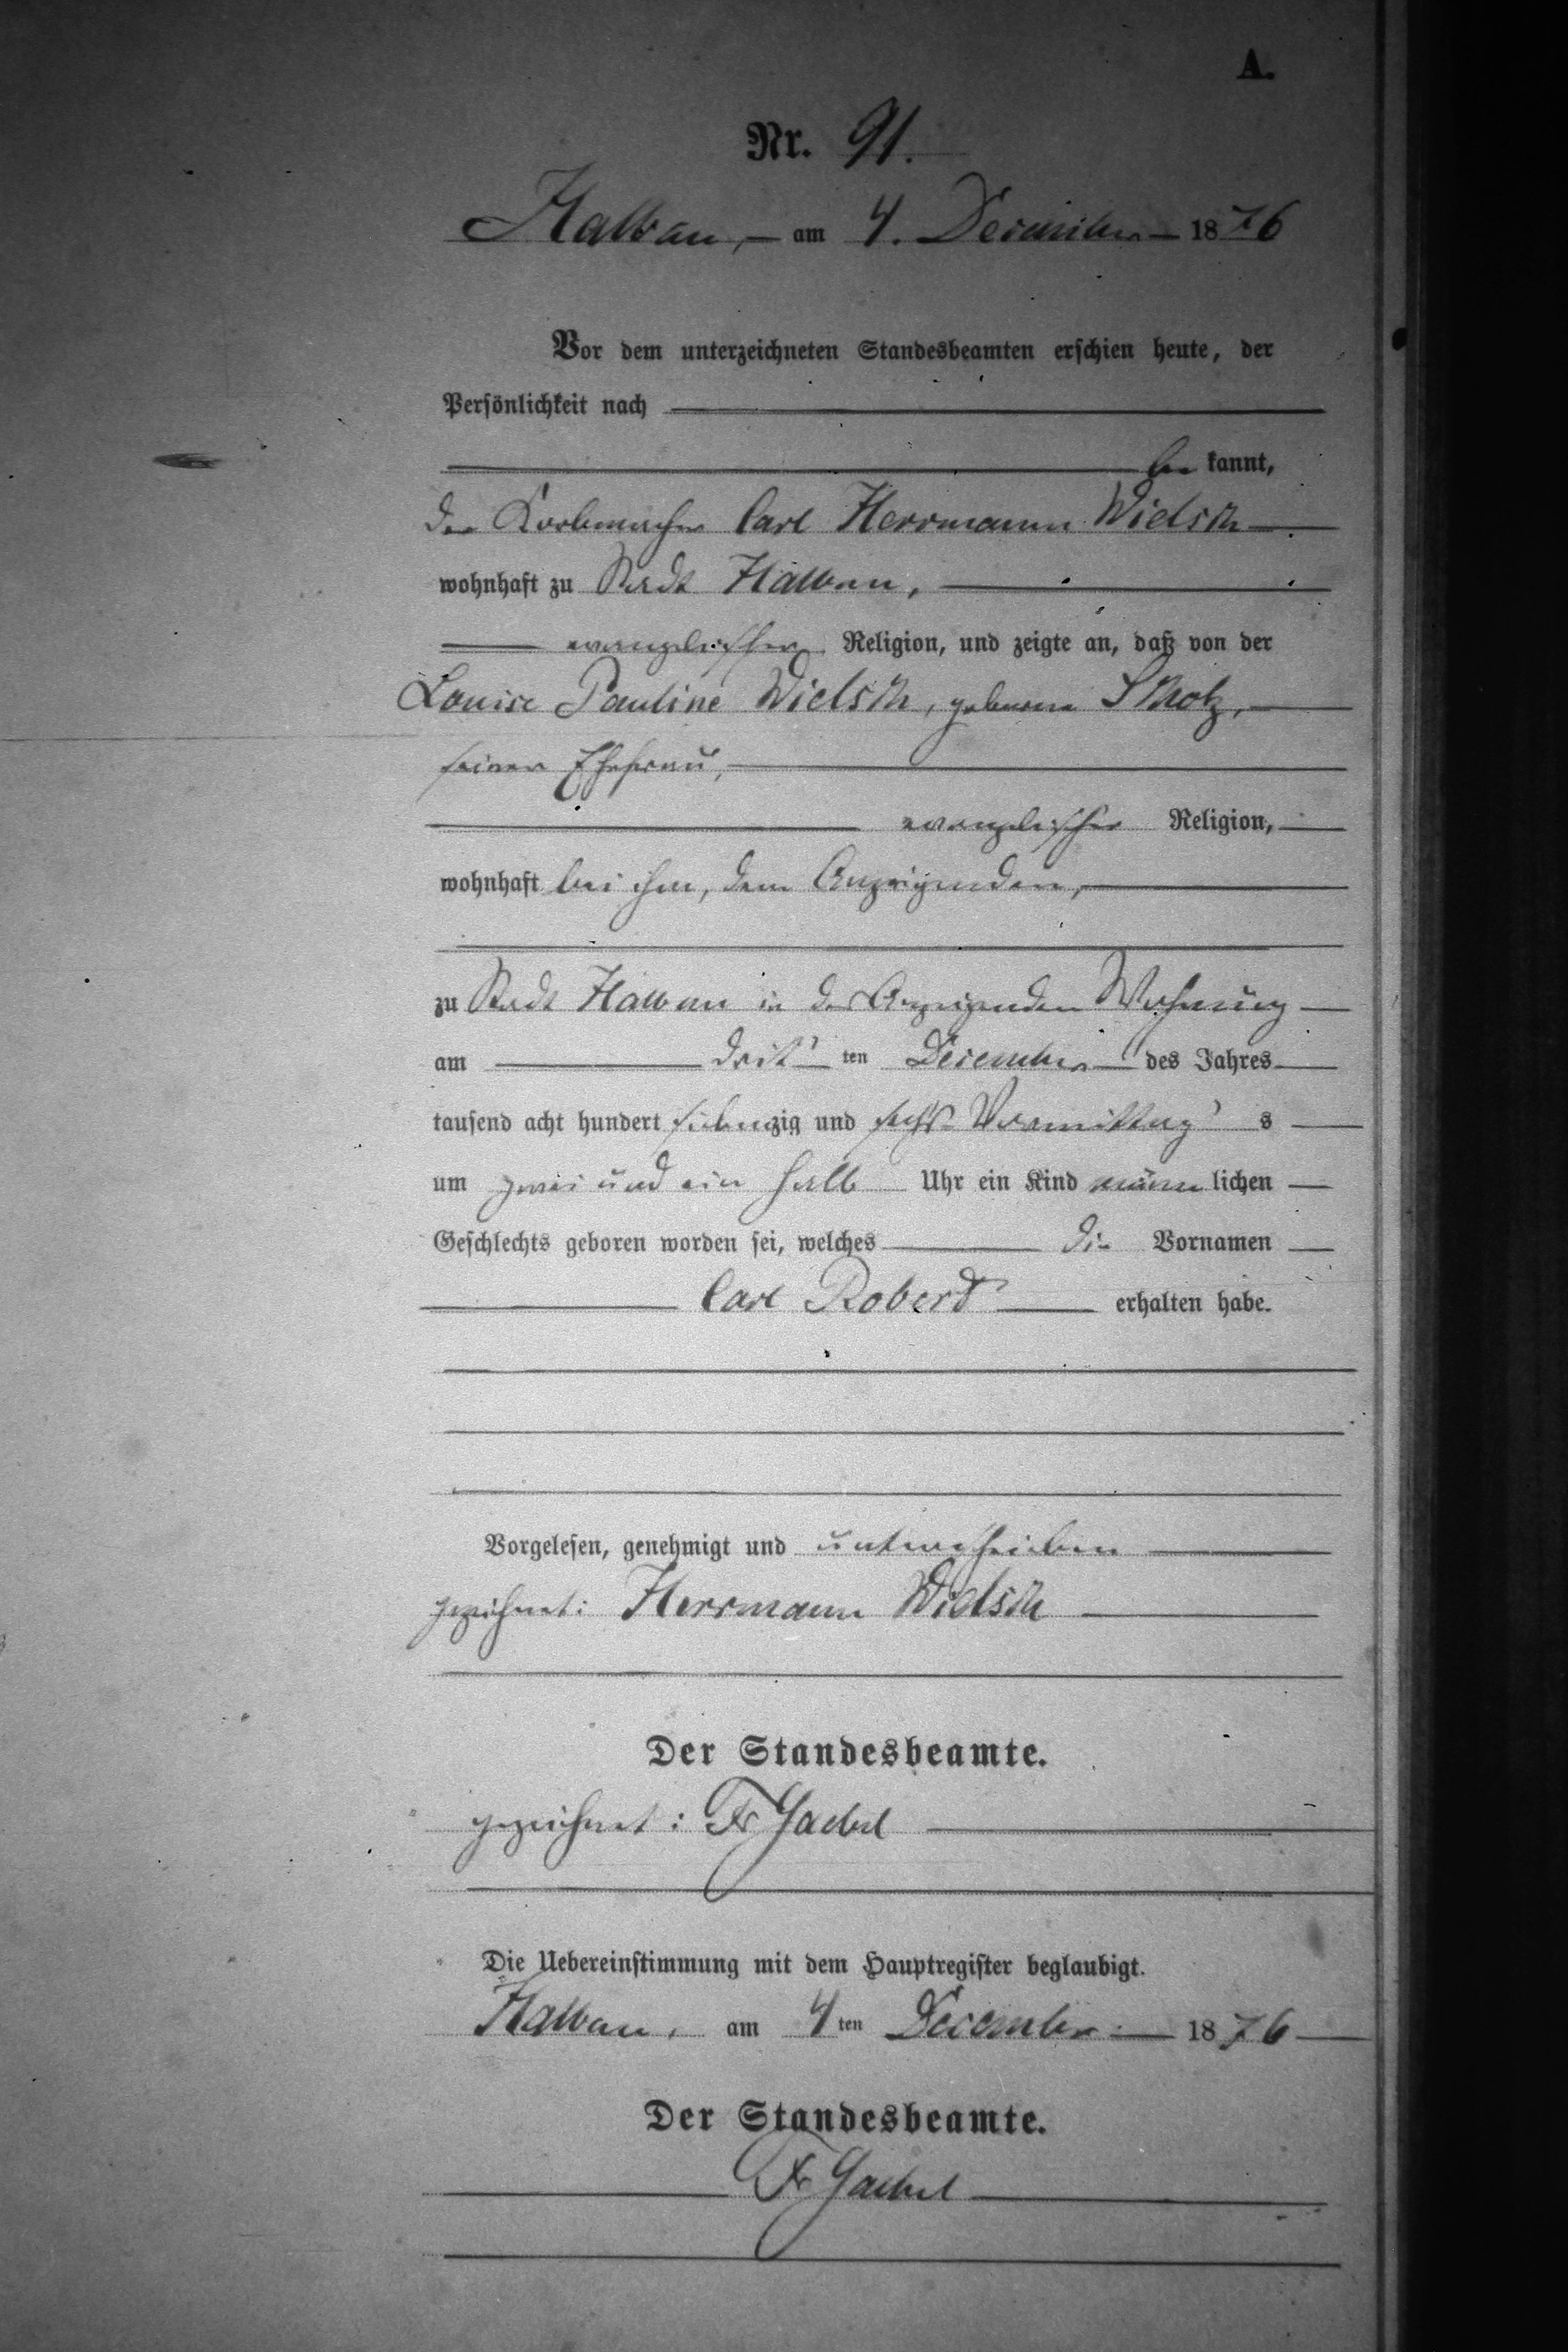 A.
Nr. 91.
Halbau, am 4. December 1876
Vor dem unterzeichneten Standesbeamten erschien heute, der
Persönlichkeit nach
be kannt,
der Korbmacher Carl Herrmann Wielsch
wohnhaft zu Stadt Halbau,
evangelischer Religion, und zeigte an, daß von der
Louise Pauline Wielsch, geborene Scholz,
seiner Ehefrau,
evangelischer Religion,
wohnhaft bei ihm, dem Anzeigenden,
zu Stadt Halbau in des Anzeigenden Wohnung
am dritten December des Jahres
tausend acht hundert siebenzig und sechs Vormittags
um zwei und ein halb Uhr ein Kind männlichen
Geschlechts geboren worden sei, welches die Vornamen
Carl Robert erhalten habe.
Vorgelesen, genehmigt und unterschrieben
gezeichnet: Herrmann Wielsch
Der Standesbeamte.
gezeichnet: Fr Gaebel
Die Uebereinstimmung mit dem Hauptregister beglaubigt.
Halbau, am 4ten December 1876
Der Standesbeamte.
Fr Gaebel